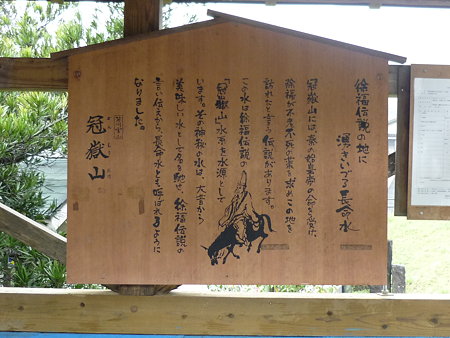 徐福伝説の地に
湧きいづる長命水
冠嶽山には、秦の始皇帝の命を受け、
徐福が不老不死の薬を求めこの地を
訪れたと言う伝説があります。
この水は徐福伝説の
「冠嶽山水系を水源として
います。その神秘の水は、大昔から
美味しい水として名を馳せ、徐福伝説の
言い伝えから、長命水とも呼ばれるように
なりました。
冠嶽山